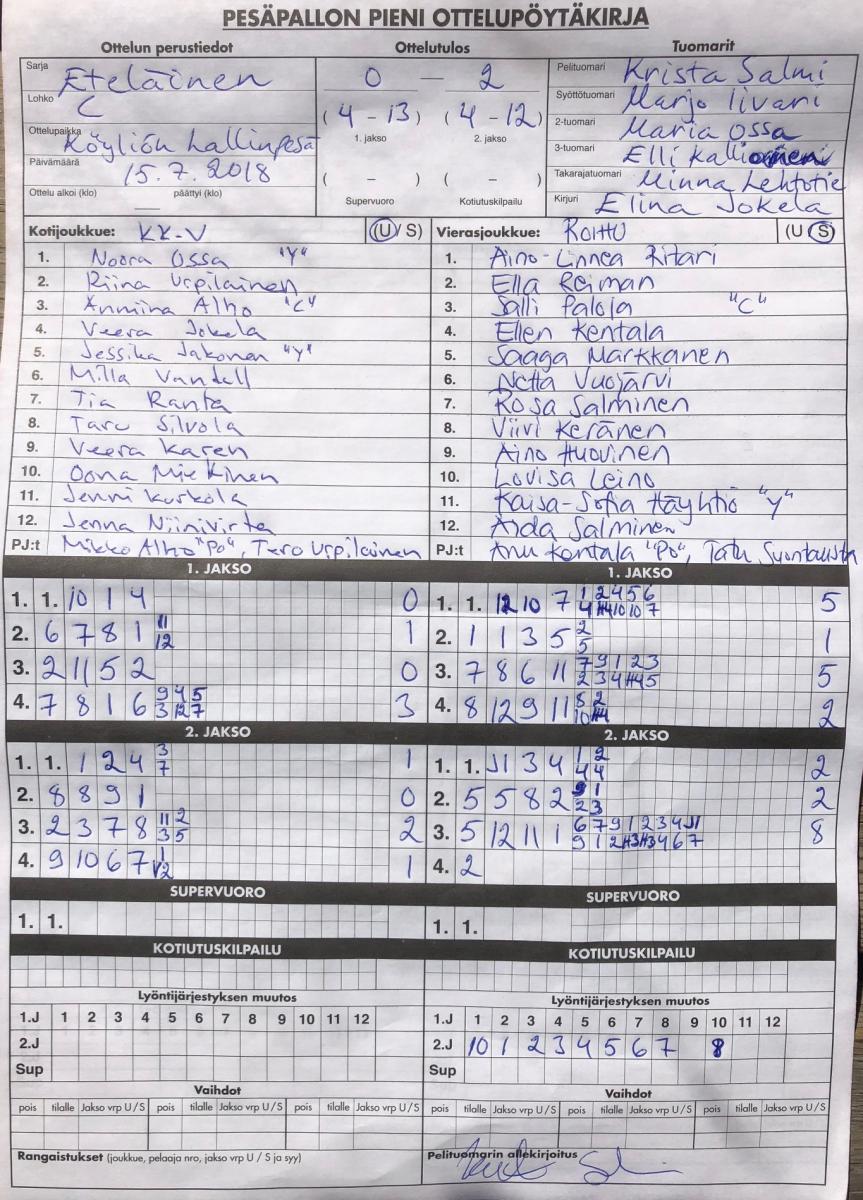 PESÄPALLON PIENI OTTELUPÖYTÄKIRJA
Ottelun perustiedot
Sarja Eteläinen
Lohko C
Ottelupaikka Köyliön Lallinpesä
Päivämäärä 15.7.2018
Ottelu alkoi (klo) päättyi (klo)
Ottelutulos
0 – 2
(4 – 13) (4 – 12)
1. jakso 2. jakso
( – ) ( – )
Supervuoro Kotiutuskilpailu
Tuomarit
Pelituomari Krista Salmi
Syöttötuomari Marjo Iivari
2-tuomari Maria Ossa
3-tuomari Elli
Takarajatuomari Minna Lehtotie
Kirjuri Elina Jokela
Kotijoukkue: KK-V (U / S)
1. Noora Ossa "Y"
2. Riina Urpilainen
3. Anniina Alho "C"
4. Veera Jokela
5. Jessika Jakonen "Y"
6. Milla Vandell
7. Tia Ranta
8. Taru Silvola
9. Veera Karen
10. Oona Miekinen
11. Jenni Kurkola
12. Jenna Niinivirta
PJ:t Mikko Alho "PO", Tero Urpilainen
Vierasjoukkue: ROITTU (U S)
1. Aino-Linnea Ritari
2. Ella Reiman
3. Salli Paloja "C"
4. Ellen Kentala
5. Saaga Markkanen
6. Netta Vuojärvi
7. Rosa Salminen
8. Viivi Keränen
9. Aino Huovinen
10. Lovisa Leino
11. Kaisa-Sofia Häyhtiö "Y"
12. Aida Salminen
PJ:t Anu Kentala "PO", Tatu Suontausta
1. JAKSO
1. 1. 10 1 4 0
2. 6 7 8 1 11 1
12
3. 2 11 5 2 0
4. 7 8 1 6 9 4 5 3
3 12 7
2. JAKSO
1. 1. 1 2 4 3 1
7
2. 8 8 9 1 0
3. 2 3 7 8 11 2 2
3 5
4. 9 10 6 7 1 1
12
SUPERVUORO
1. 1.
KOTIUTUSKILPAILU
Lyöntijärjestyksen muutos
1.J 1 2 3 4 5 6 7 8 9 10 11 12
2.J
Sup
Vaihdot
pois tilalle Jakso vrp U / S pois tilalle Jakso vrp U / S pois tilalle Jakso vrp U / S
Rangaistukset (joukkue, pelaaja nro, jakso vrp U / S ja syy)
1. JAKSO
1. 1. 12 10 7 1 2 4 5 6 5
4 10 10 7
2. 1 1 3 5 2 1
5
3. 7 8 6 11 7 9 1 2 3 5
2 3 4 5
4. 8 12 9 11 8 2 2
10
2. JAKSO
1. 1. J1 3 4 1 2 2
4 4
2. 5 5 8 2 9 1 2
2 3
3. 5 12 11 1 6 7 9 1 2 3 4 J1 8
9 1 2 4 6 7
4. 2
SUPERVUORO
1. 1.
KOTIUTUSKILPAILU
Lyöntijärjestyksen muutos
1.J 1 2 3 4 5 6 7 8 9 10 11 12
2.J 10 1 2 3 4 5 6 7 8
Sup
Vaihdot
pois tilalle Jakso vrp U / S pois tilalle Jakso vrp U / S pois tilalle Jakso vrp U / S
Pelituomarin allekirjoitus